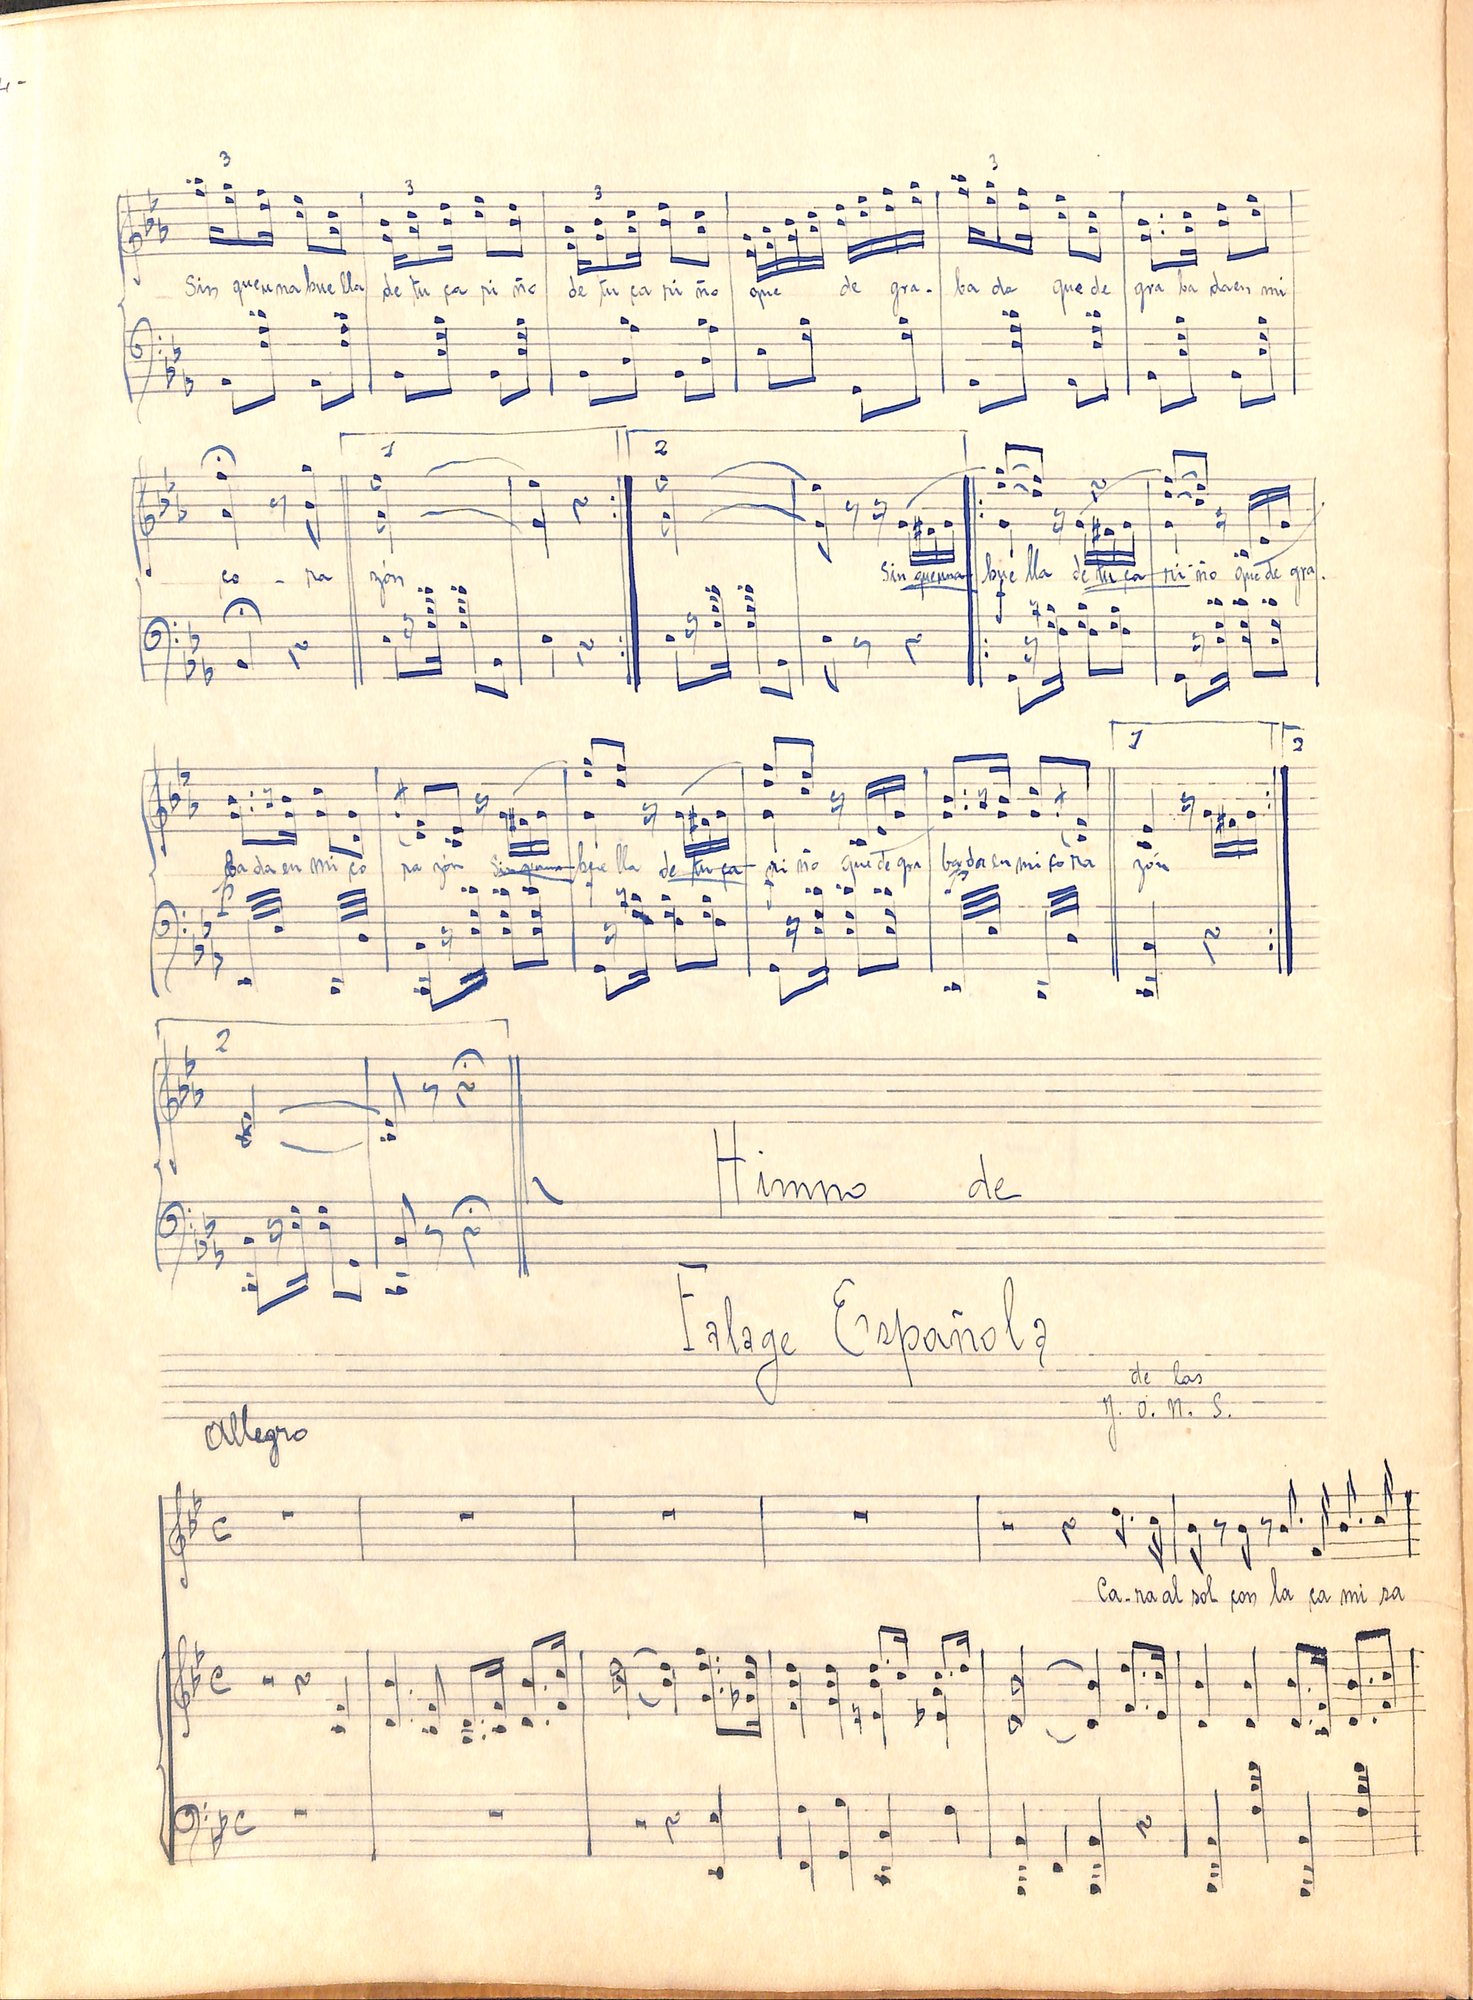 4-
3 3 3 3
Sin que una hue lla de tu ça ri ño de tu ça ri ño que de gra- ba da que de gra ba da en mi
1 2
ço - ra zón Sin que una hue lla de tu ça ri ño que de gra.
1 2
ba da en mi ço ra zón Sin que una hue lla de tu ça ri ño que de gra ba da en mi ço ra zón
2
Himno de
Falage Española
de las
J. O. N. S.
Allegro
Ca-ra al sol çon la ça mi sa